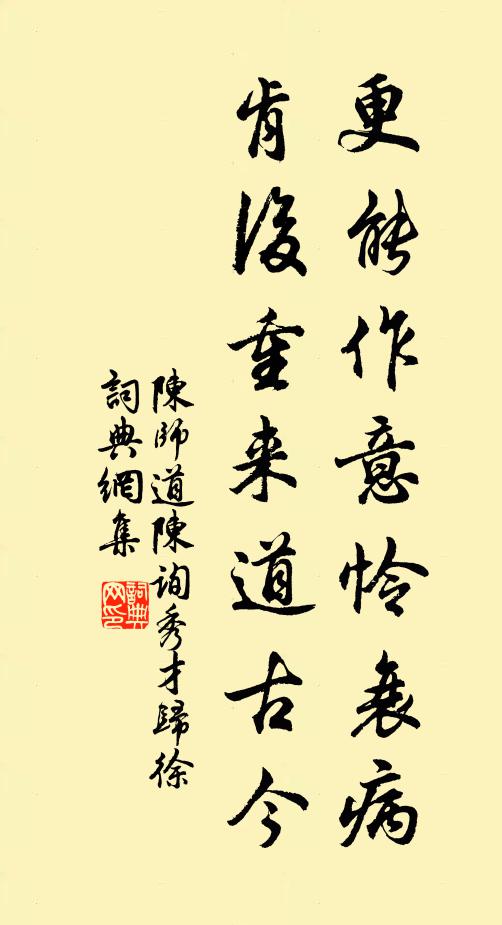 更能作意怜衰病
肯復重来道古今
陳師道陳詢秀才歸徐
詞典網集
詞典网印